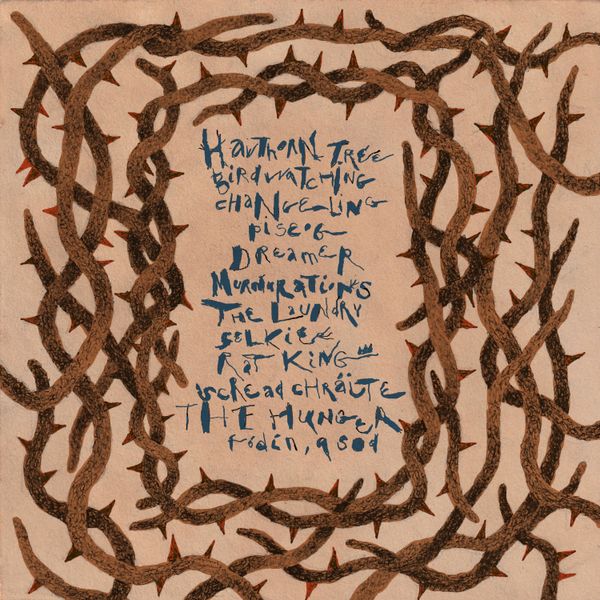 Hawthorn Tree
Birdwatching
Changeling
Piseog
Dreamer
Murmurations
The Laundry
Selkie
Rat King
Scread Chráite
THE HUNGER
Fódín, a sod